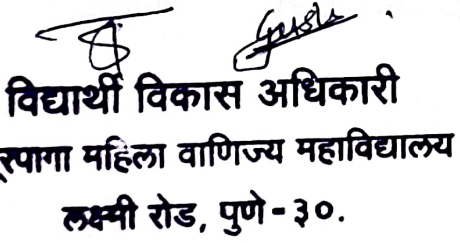 विद्यार्थी विकास अधिकारी
महिला वाणिज्य महाविद्यालय
लक्ष्मी रोड, पुणे-३०.